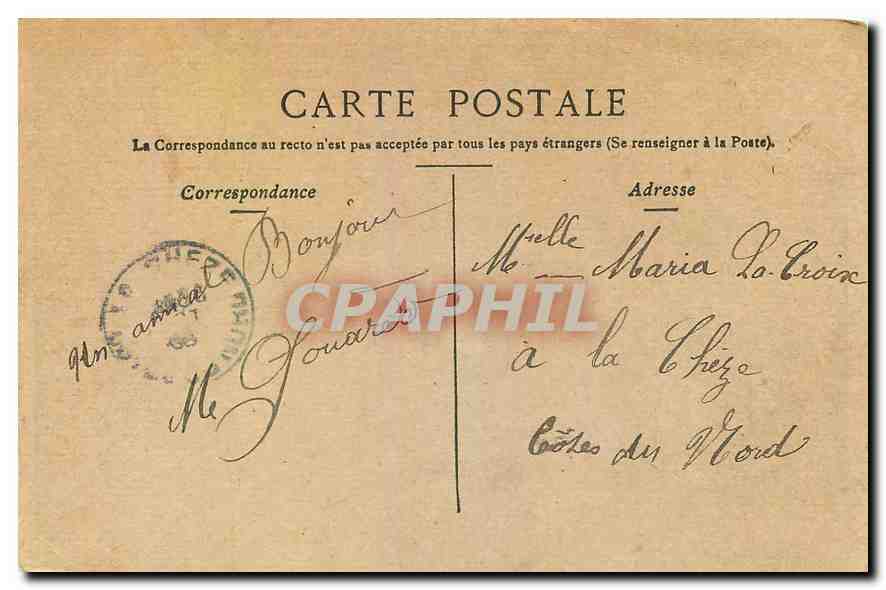 CARTE POSTALE
La Correspondance au recto n'est pas acceptée par tous les pays étrangers (Se renseigner à la Poste).
Correspondance
Un amical Bonjour
Adresse
Melle Maria La Croix
à la Chèze
Côtes du Nord
CPARAPHIL